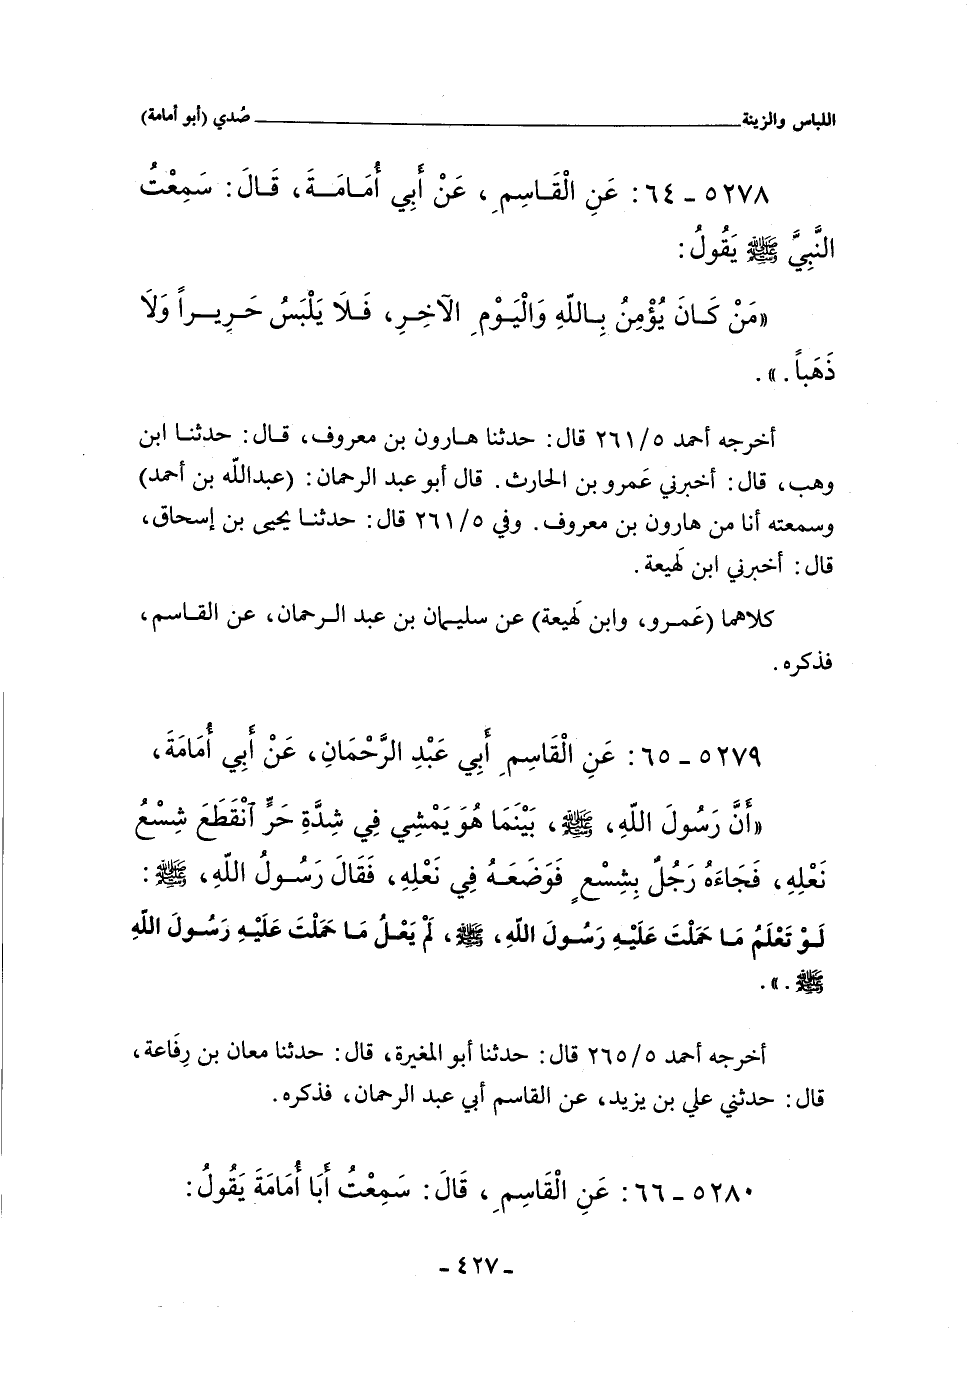 اللباس والزينة ـــــــــــــــــــــــــــــــــــــــ صُدي (أبو أمامة)
٥٢٧٨ - ٦٤: عَنِ الْقَاسِمِ، عَنْ أَبِي أُمَامَةَ، قَالَ: سَمِعْتُ
النَّبِيَّ ﷺ يَقُولُ:
«مَنْ كَانَ يُؤْمِنُ بِاللّهِ وَالْيَوْمِ الآخِرِ، فَلَا يَلْبَسُ حَرِيراً وَلَا
ذَهَباً.».
أخرجه أحمد ٢٦١/٥ قال: حدثنا هارون بن معروف، قال: حدثنا ابن
وهب، قال: أخبرني عَمرو بن الحارث. قال أبو عبد الرحمان: (عبدالله بن أحمد)
وسمعته أنا من هارون بن معروف. وفي ٢٦١/٥ قال: حدثنا يحيى بن إسحاق،
قال: أخبرني ابن لَهيعة.
كلاهما (عَمرو، وابن لَهيعة) عن سليمان بن عبد الرحمان، عن القاسم،
فذكره.
٥٢٧٩ - ٦٥: عَنِ الْقَاسِمِ أَبِي عَبْدِ الرَّحْمَانِ، عَنْ أَبِي أُمَامَةَ،
«أَنَّ رَسُولَ اللّهِ، ﷺ، بَيْنَمَا هُوَ يَمْشِي فِي شِدَّةِ حَرٍّ ٱنْقَطَعَ شِسْعُ
نَعْلِهِ، فَجَاءَهُ رَجُلٌ بِشِسْعٍ فَوَضَعَهُ فِي نَعْلِهِ، فَقَالَ رَسُولُ اللّهِ، ﷺ:
لَوْ تَعْلَمُ مَا حَمَلْتَ عَلَيْهِ رَسُولَ اللّهِ، ﷺ، لَمْ يَعْلُ مَا حَمَلْتَ عَلَيْهِ رَسُولَ اللّهِ
ﷺ.».
أخرجه أحمد ٢٦٥/٥ قال: حدثنا أبو المغيرة، قال: حدثنا معان بن رِفَاعة،
قال: حدثني علي بن يزيد، عن القاسم أبي عبد الرحمان، فذكره.
٥٢٨٠ - ٦٦: عَنِ الْقَاسِمِ، قَالَ: سَمِعْتُ أَبَا أُمَامَةَ يَقُولُ:
- ٤٢٧ -